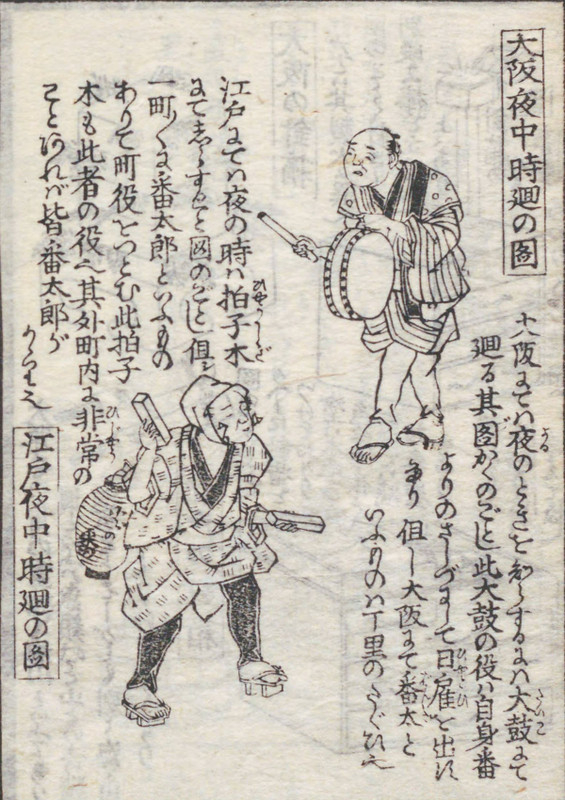 大阪夜中時廻の圖
大阪にては夜のときを知らするには大鼓にて
廻る其圖かくのごとし此大鼓の役は自身番
よりのさしづにて日雇を出す
なり但し大阪にて番太と
いふものは丁里のたぐひ也
江戸にては夜の時は拍子木
にてしらすること図のごとし但シ
一町〱に番太郎といふもの
ありて町役をつとむ此拍子
木も此者の役也其外町内に非常の
ことあれば皆番太郎が
かゝり也
江戸夜中時廻の圖